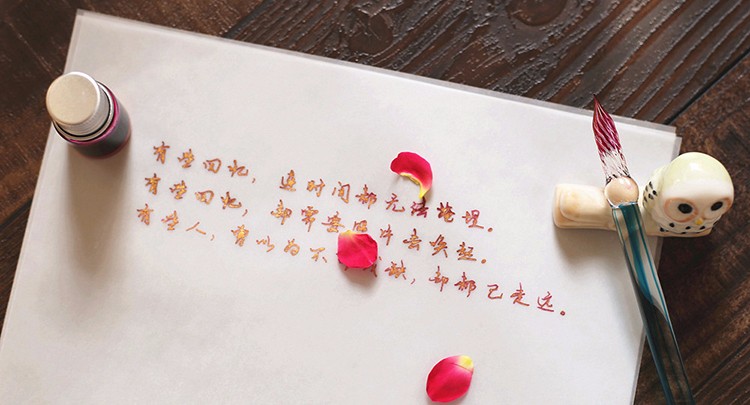 有些回忆，连时间都无法掩埋。
有些回忆，却需要冲击唤起。
有些人，以为不缺，却都已走远。